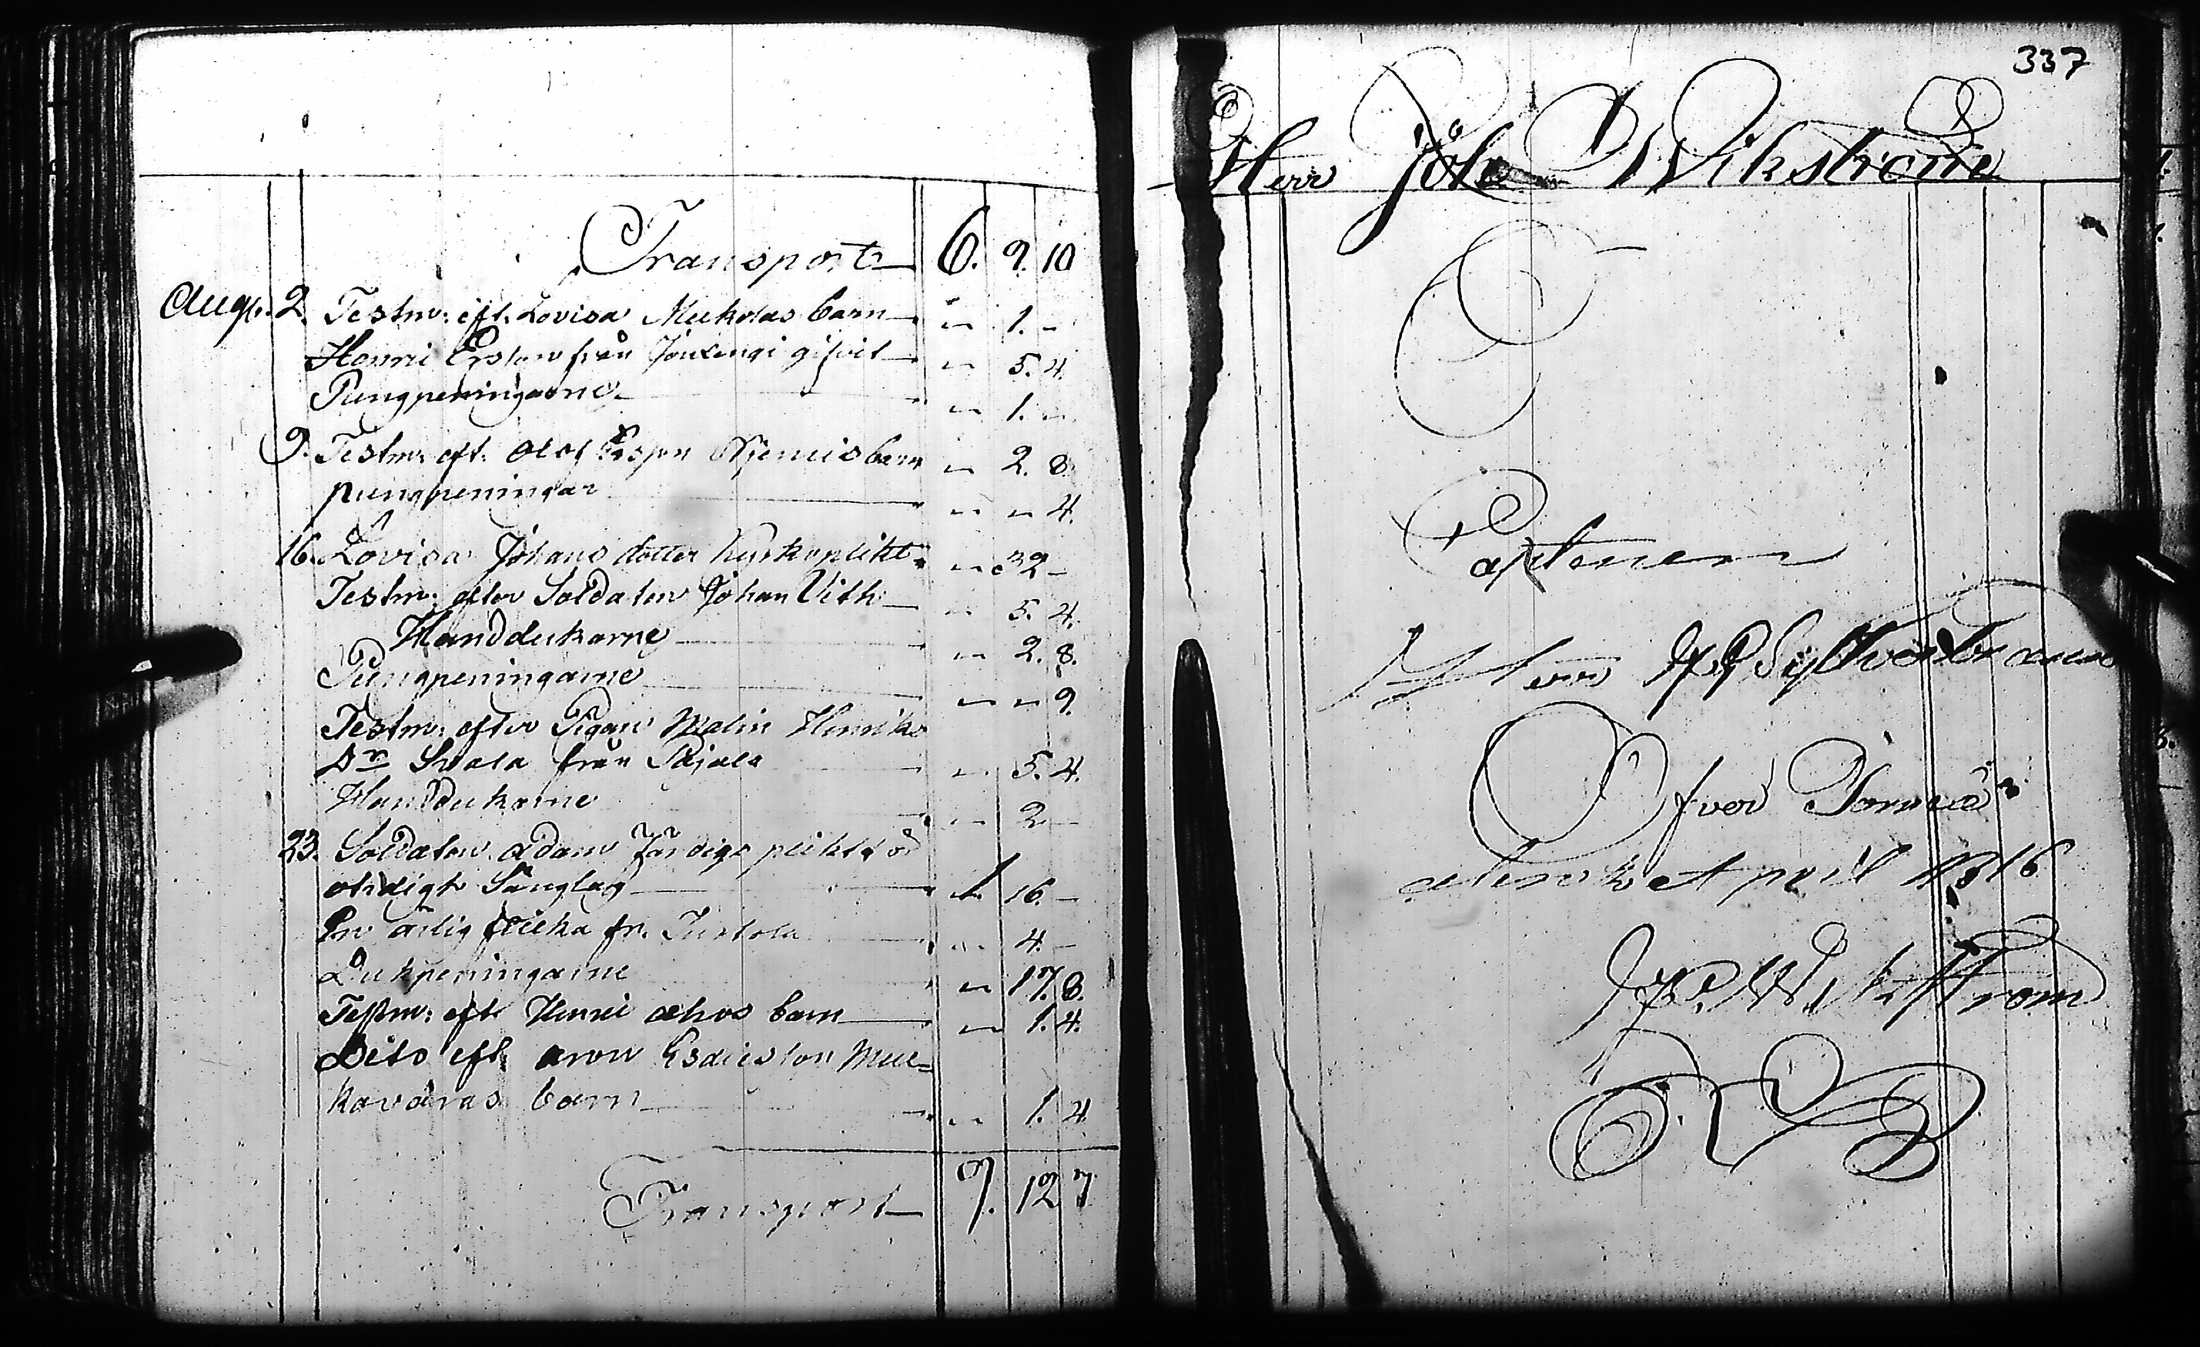 Transport 6. 9. 10
Aug. 2. Testm: eft. Lovisa Mukolas barn " 1. -
Henric Ersson från gifvit " 5. 4.
Pungpeningarne " 1. "
9. Testm: eft. Olof Ersson Niemis barn " 2. 8.
pungpeningar " " 4.
16. Lovisa Johans dotter kyrkoplikt " 32 -
Testm: efter Soldaten Johan Vith " 5. 4.
Handdukarne " 2. 8.
Pungpeningarne " " 9.
Testm: efter Pigan Malin Henriks
Dr från Pajala " 5. 4.
Handdukarne " 2 -
23. Soldaten Adam Färdigs plikt för
otidigt Sänglag 1. 16. -
En ärlig flicka fr. " 4. -
Dukpeningarne " 17. 8.
Testm: eft Henric barn " 1. 4.
Dito eft Aron Esaiesson Muc=
kavaras barn " 1. 4.
Transport 9. 12 7
337
Herr Joh Wikström
Captenen
Herr
Öfver Torneå
April 1816
J. P. Wikström